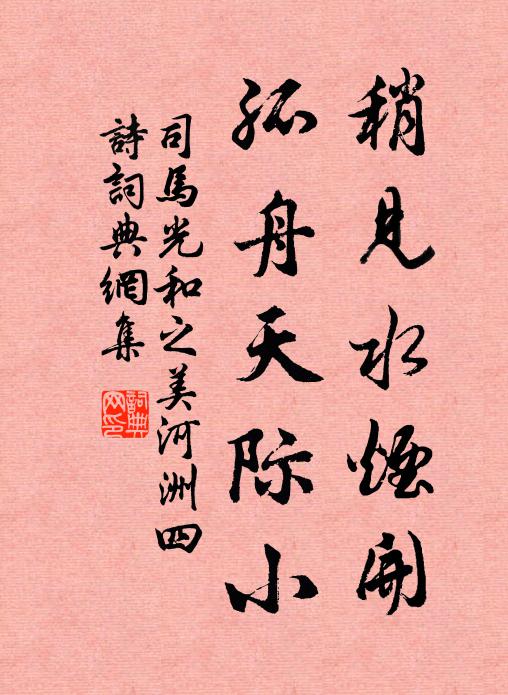 稍見水煙開
孤舟天际小
司馬光和之美河洲四
詩詞典網集
詞典网印